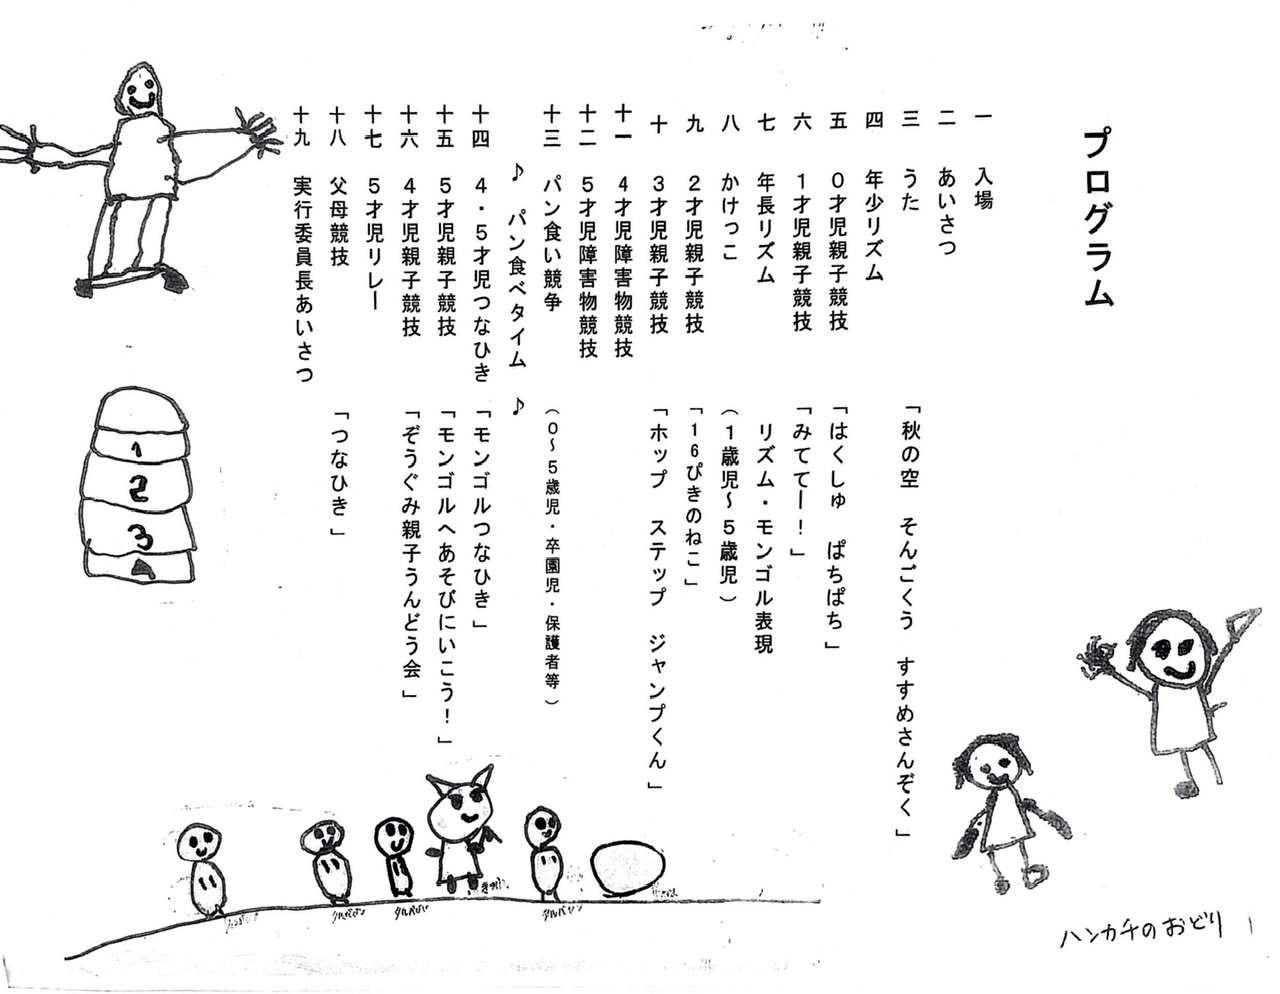 プログラム
一 入場
二 あいさつ
三 うた 「秋の空 そんごくう すすめさんぞく」
四 年少リズム
五 0才児親子競技 「はくしゅ ぱちぱち」
六 1才児親子競技 「みててー!」
七 年長リズム リズム・モンゴル表現
八 かけっこ (1歳児~5歳児)
九 2才児親子競技 「16ぴきのねこ」
十 3才児親子競技 「ホップ ステップ ジャンプくん」
十一 4才児障害物競技
十二 5才児障害物競技
十三 パン食い競争 (0~5歳児・卒園児・保護者等)
♪ パン食べタイム ♪
十四 4・5才児つなひき 「モンゴルつなひき」
十五 5才児親子競技 「モンゴルへあそびにいこう!」
十六 4才児親子競技 「ぞうぐみ親子うんどう会」
十七 5才児リレー
十八 父母競技 「つなひき」
十九 実行委員長あいさつ
1
2
3
ハンカチのおどり